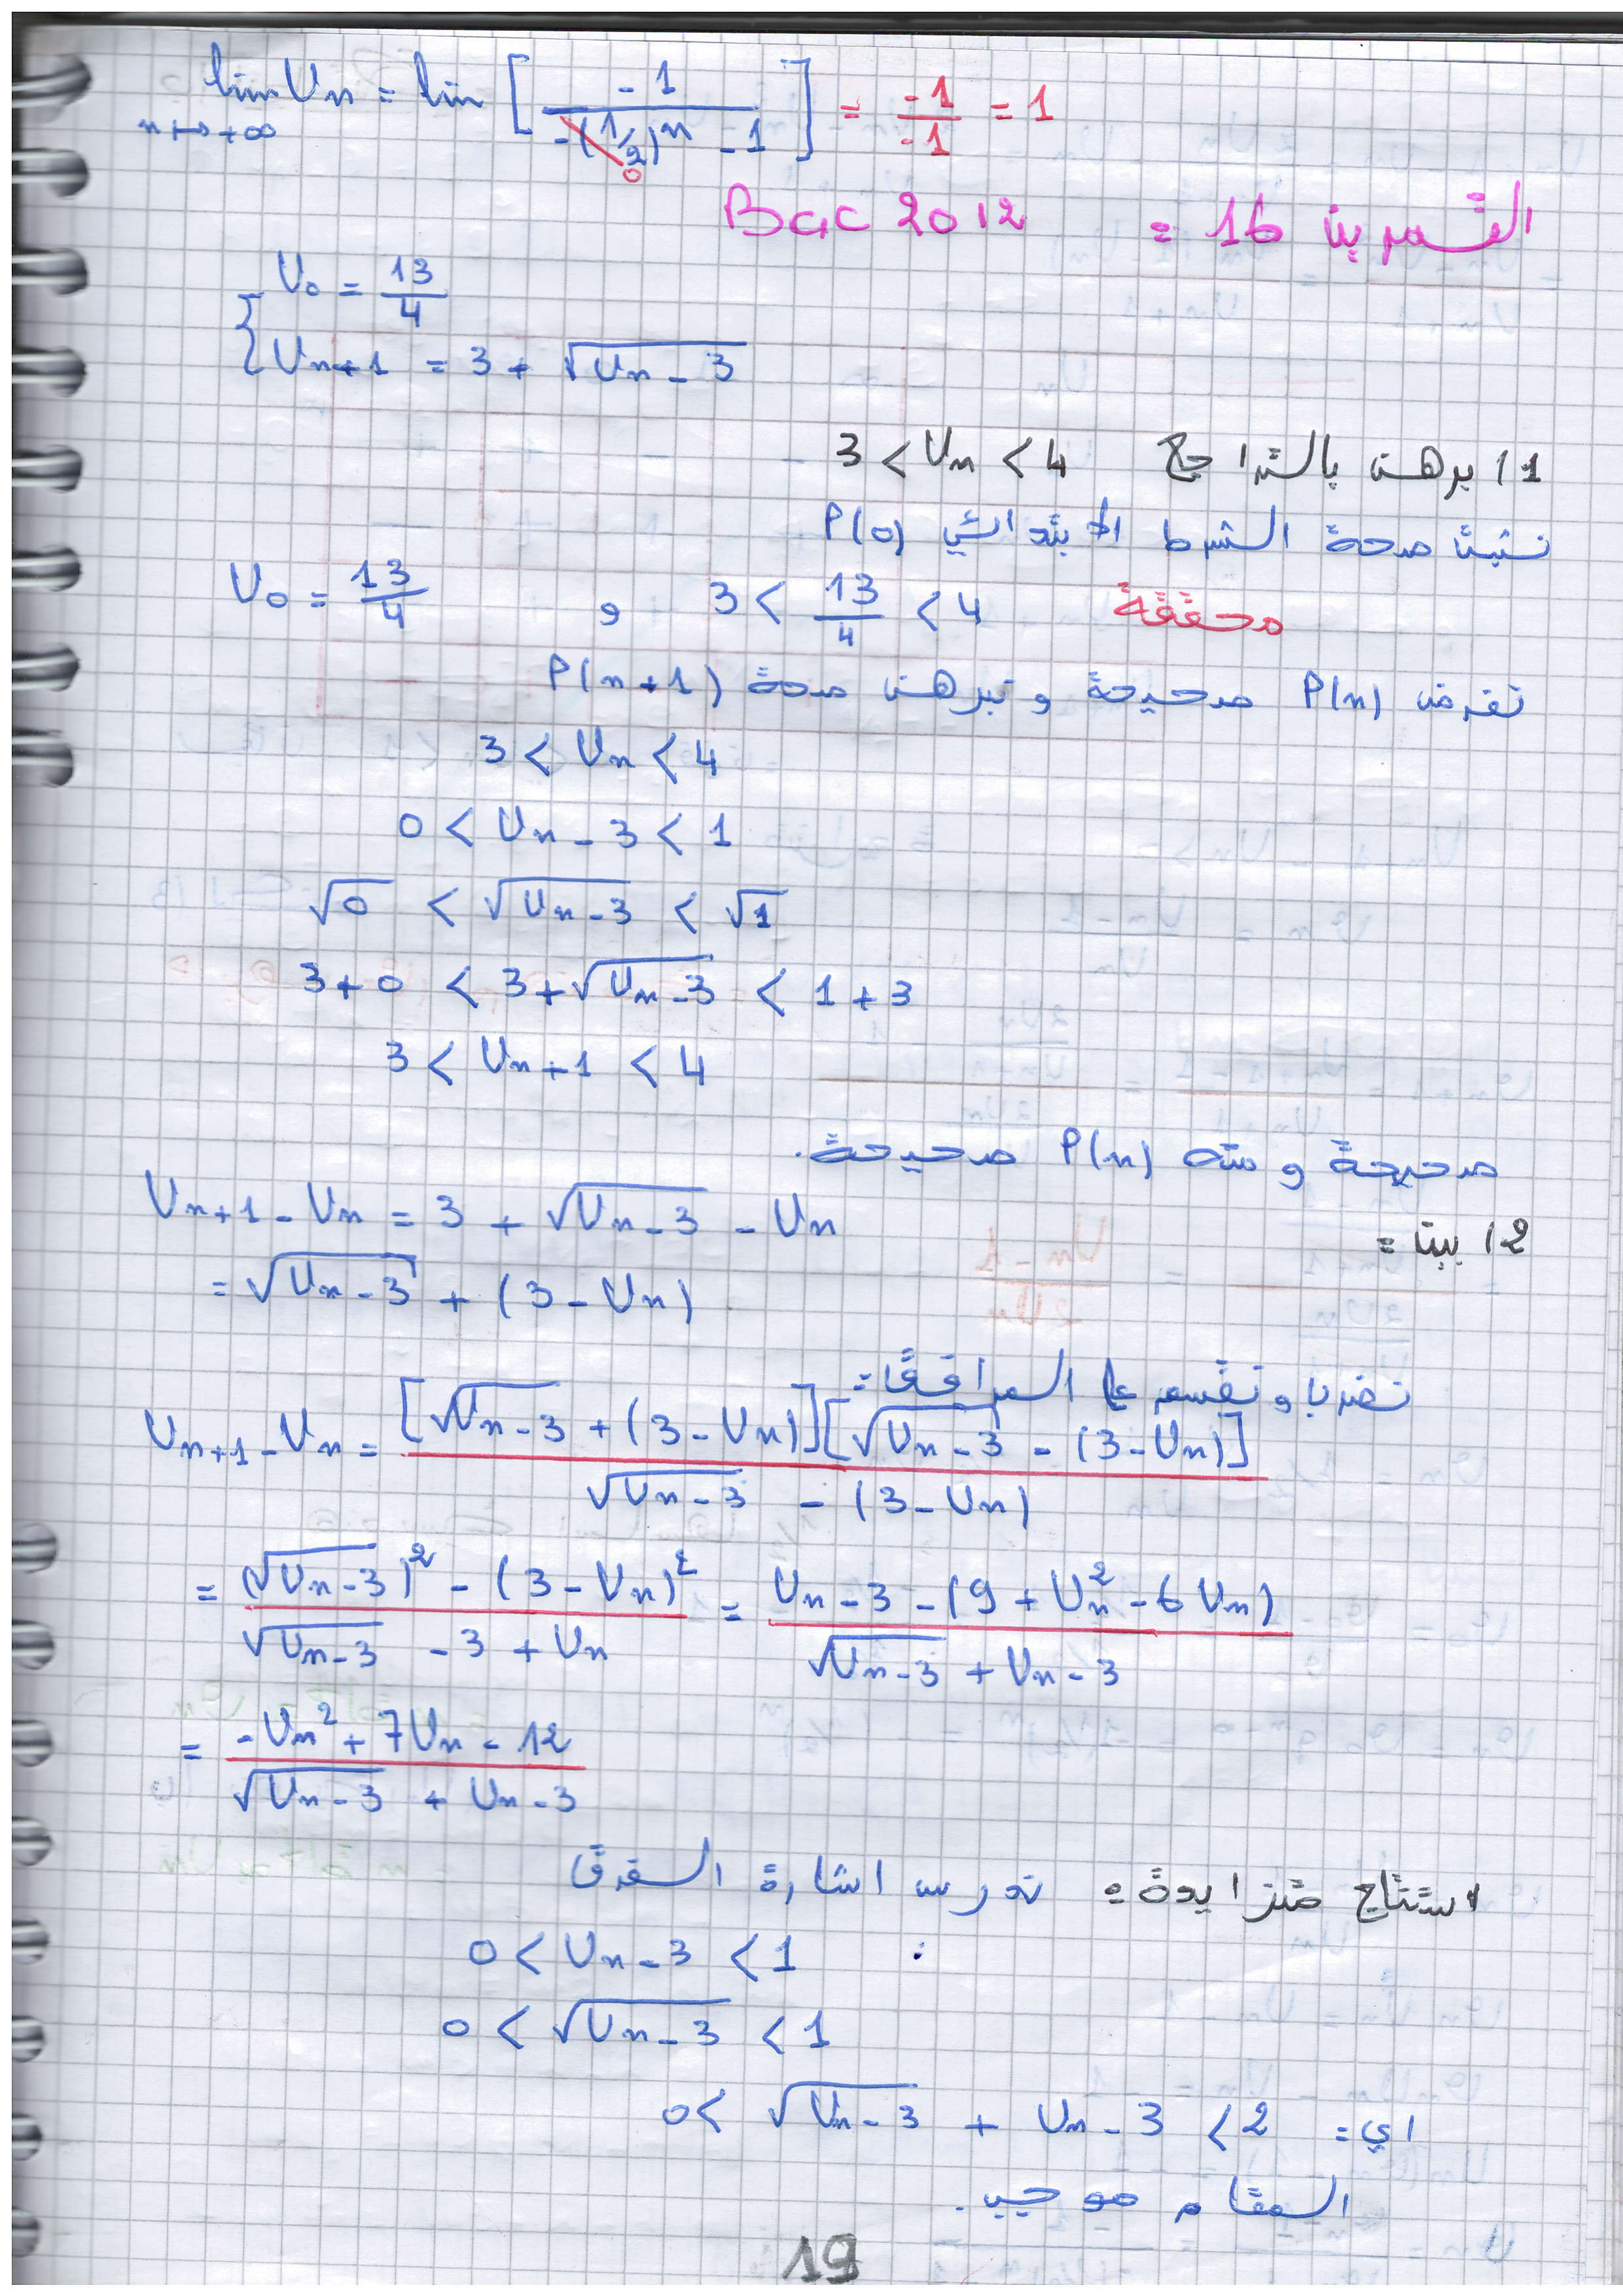 lim Un = lim [ -1 / (-(1/2)^n - 1) ] = -1/-1 = 1
n→+∞ 0
التمرين 16 = Bac 2012
{ U0 = 13/4
Un+1 = 3 + √(Un - 3)
1) برهن بالتراجع 3 < Un < 4
نتبث صحة الشرط الابتدائي P(0)
U0 = 13/4 و 3 < 13/4 < 4 محققة
نفرض P(n) صحيحة و نبرهن صحة P(n+1)
3 < Un < 4
0 < Un - 3 < 1
√0 < √(Un - 3) < √1
3+0 < 3+√(Un - 3) < 1+3
3 < Un+1 < 4
صحيحة و منه P(n) صحيحة.
2) بين =
Un+1 - Un = 3 + √(Un - 3) - Un
= √(Un - 3) + (3 - Un)
نضرب و نقسم على المرافق =
Un+1 - Un = [√(Un - 3) + (3 - Un)][√(Un - 3) - (3 - Un)] / (√(Un - 3) - (3 - Un))
= ((√(Un - 3))² - (3 - Un)²) / (√(Un - 3) - 3 + Un) = (Un - 3 - (9 + Un² - 6Un)) / (√(Un - 3) + Un - 3)
= (-Un² + 7Un - 12) / (√(Un - 3) + Un - 3)
استنتاج متزايدة = ندرس اشارة الفرق
0 < Un - 3 < 1 :
0 < √(Un - 3) < 1
اي = 0 < √(Un - 3) + Un - 3 < 2
المقام موجب.
19